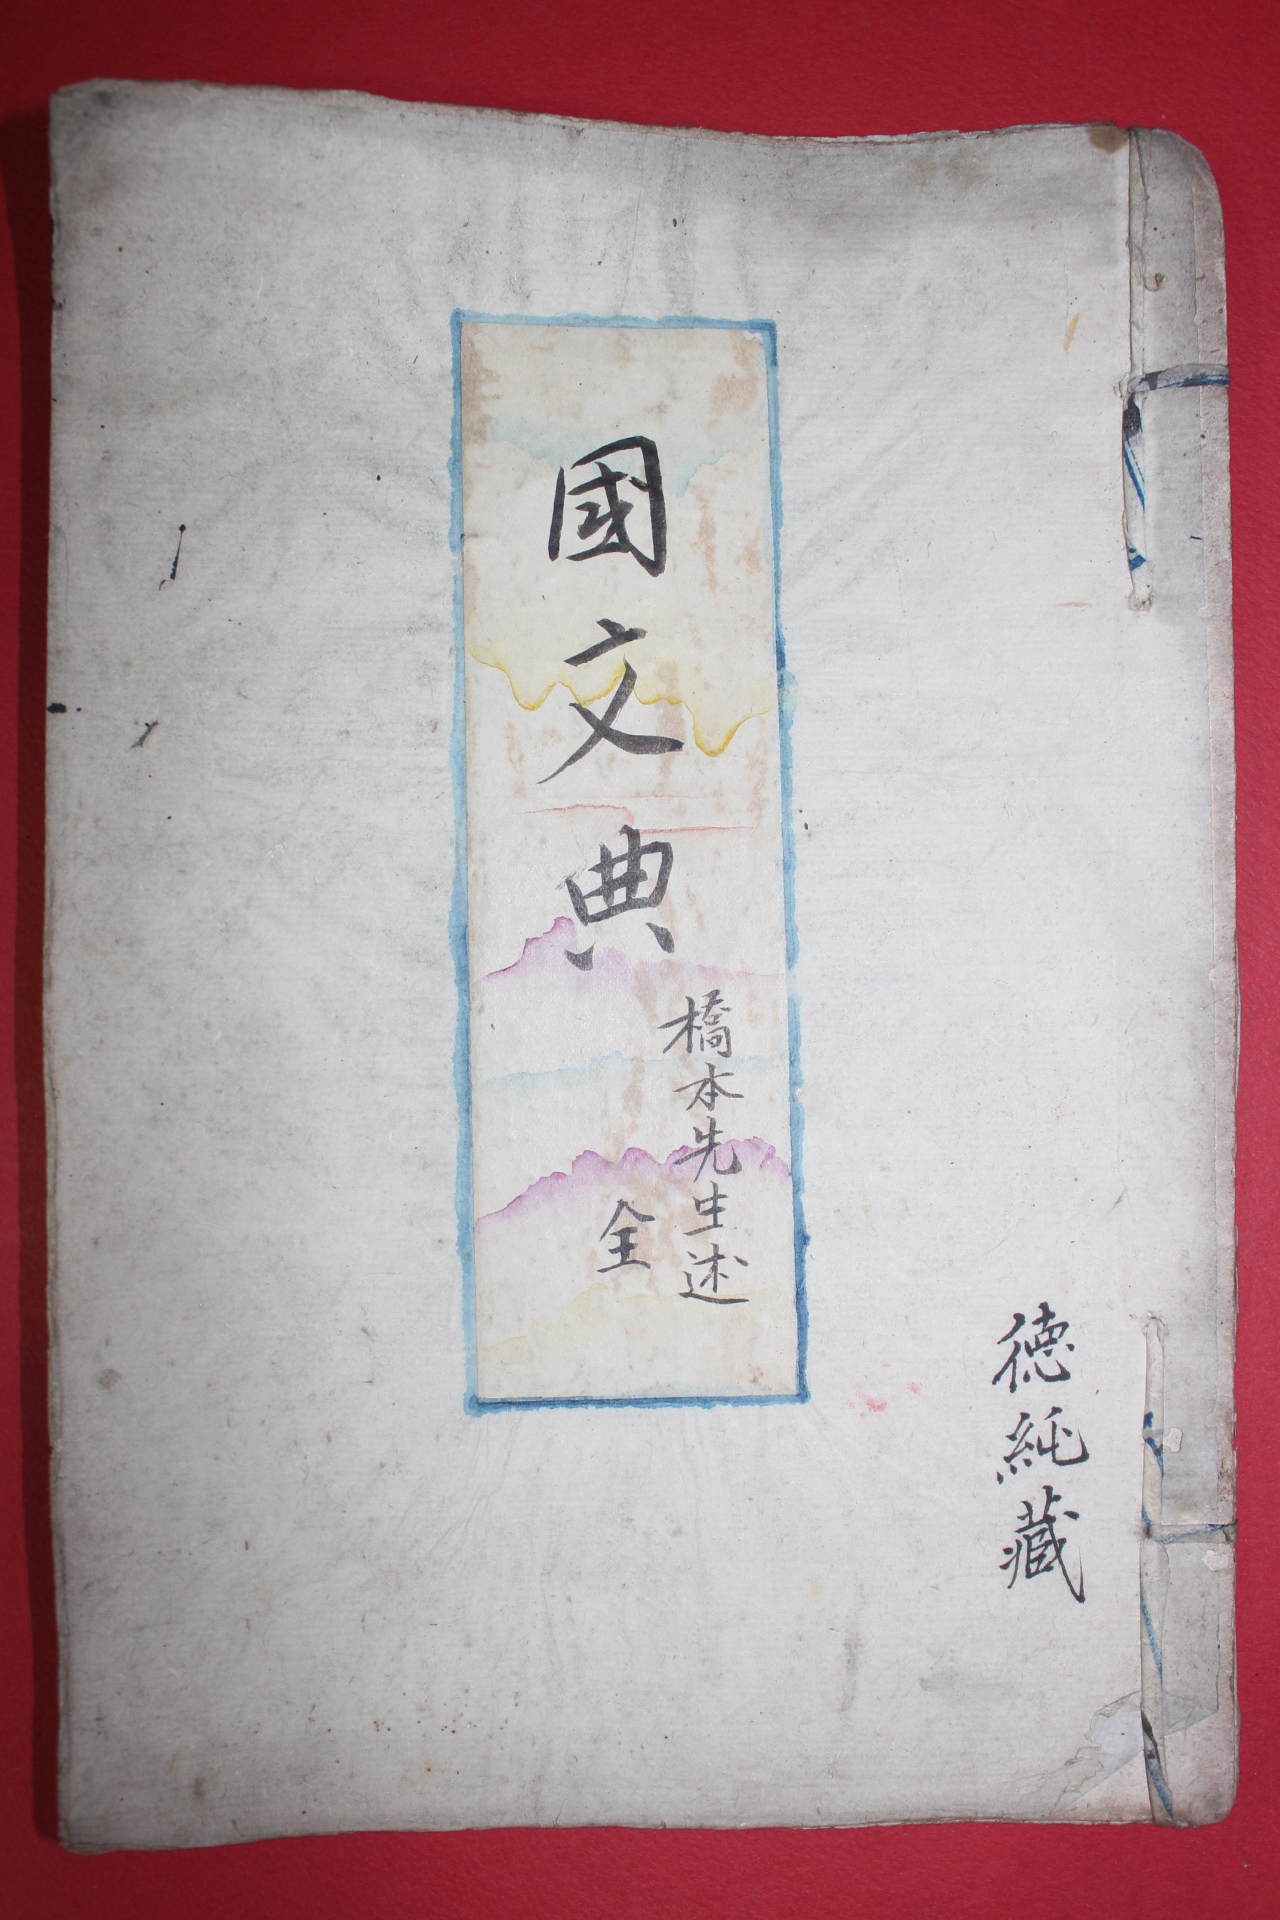 德純藏
國文典
橋本先生述
全